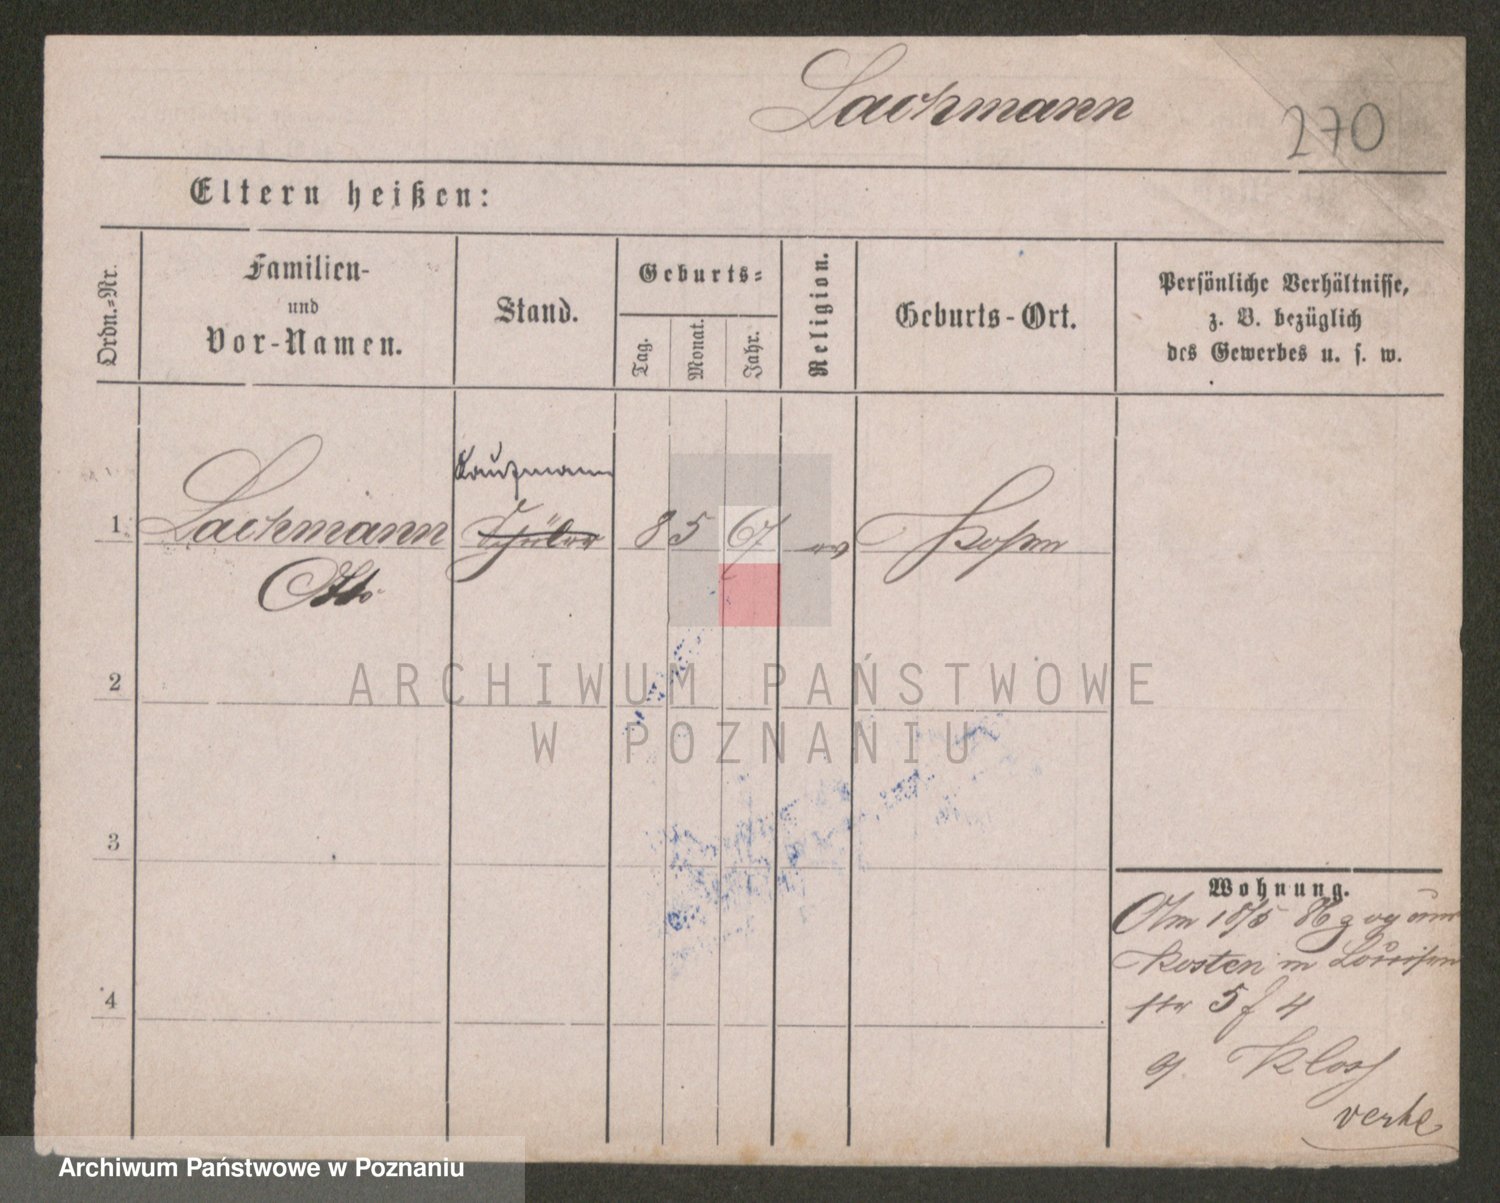 Lachmann
270
Eltern heißen:
Ordn.-Nr.
Familien-
und
Vor-Namen.
Stand.
Geburts-
Tag.
Monat.
Jahr.
Religion.
Geburts-Ort.
Persönliche Verhältnisse,
z. B. bezüglich
des Gewerbes u. s. w.
Kaufmann
1
Lachmann
Schüler
8
5
67
ev
Posen
Otto
2
ARCHIWUM PAŃSTWOWE
W POZNANIU
3
Wohnung.
Am 18/5
Kosten in Louisen
str 5 f 4
Kloss
4
verke
Archiwum Państwowe w Poznaniu